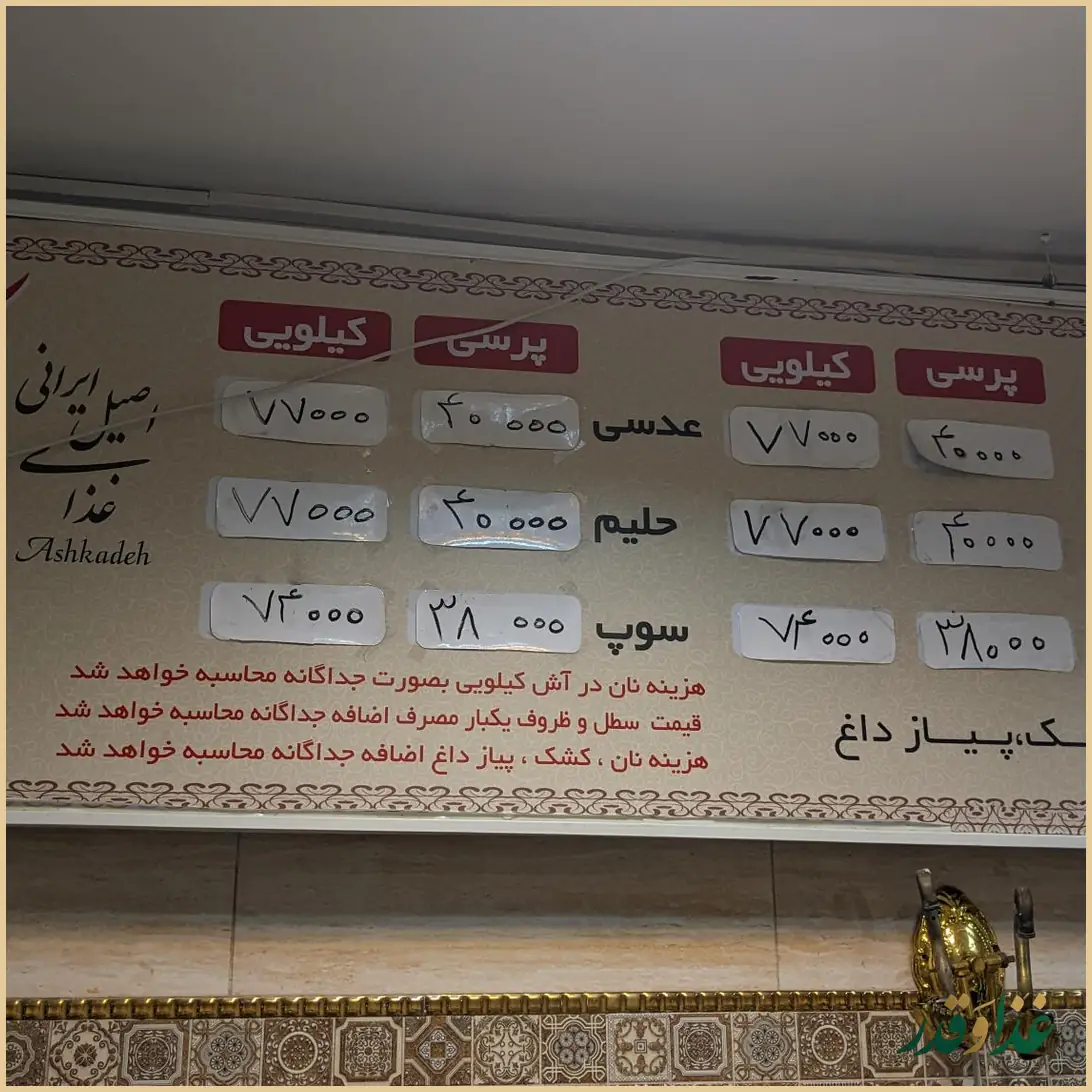 پرسی کیلویی
۴۰۰۰۰ ۷۷۰۰۰
۴۰۰۰۰ ۷۷۰۰۰
۳۸۰۰۰ ۷۴۰۰۰
ـک،پیـاز داغ
پرسی کیلویی
عدسی ۴۰۰۰۰ ۷۷۰۰۰
حلیم ۴۰۰۰۰ ۷۷۰۰۰
سوپ ۳۸۰۰۰ ۷۴۰۰۰
هزینه نان در آش کیلویی بصورت جداگانه محاسبه خواهد شد
قیمت سطل و ظروف یکبار مصرف اضافه جداگانه محاسبه خواهد شد
هزینه نان ، کشک ، پیاز داغ اضافه جداگانه محاسبه خواهد شد
غذای اصیل ایرانی
Ashkadeh
غذا و قدر